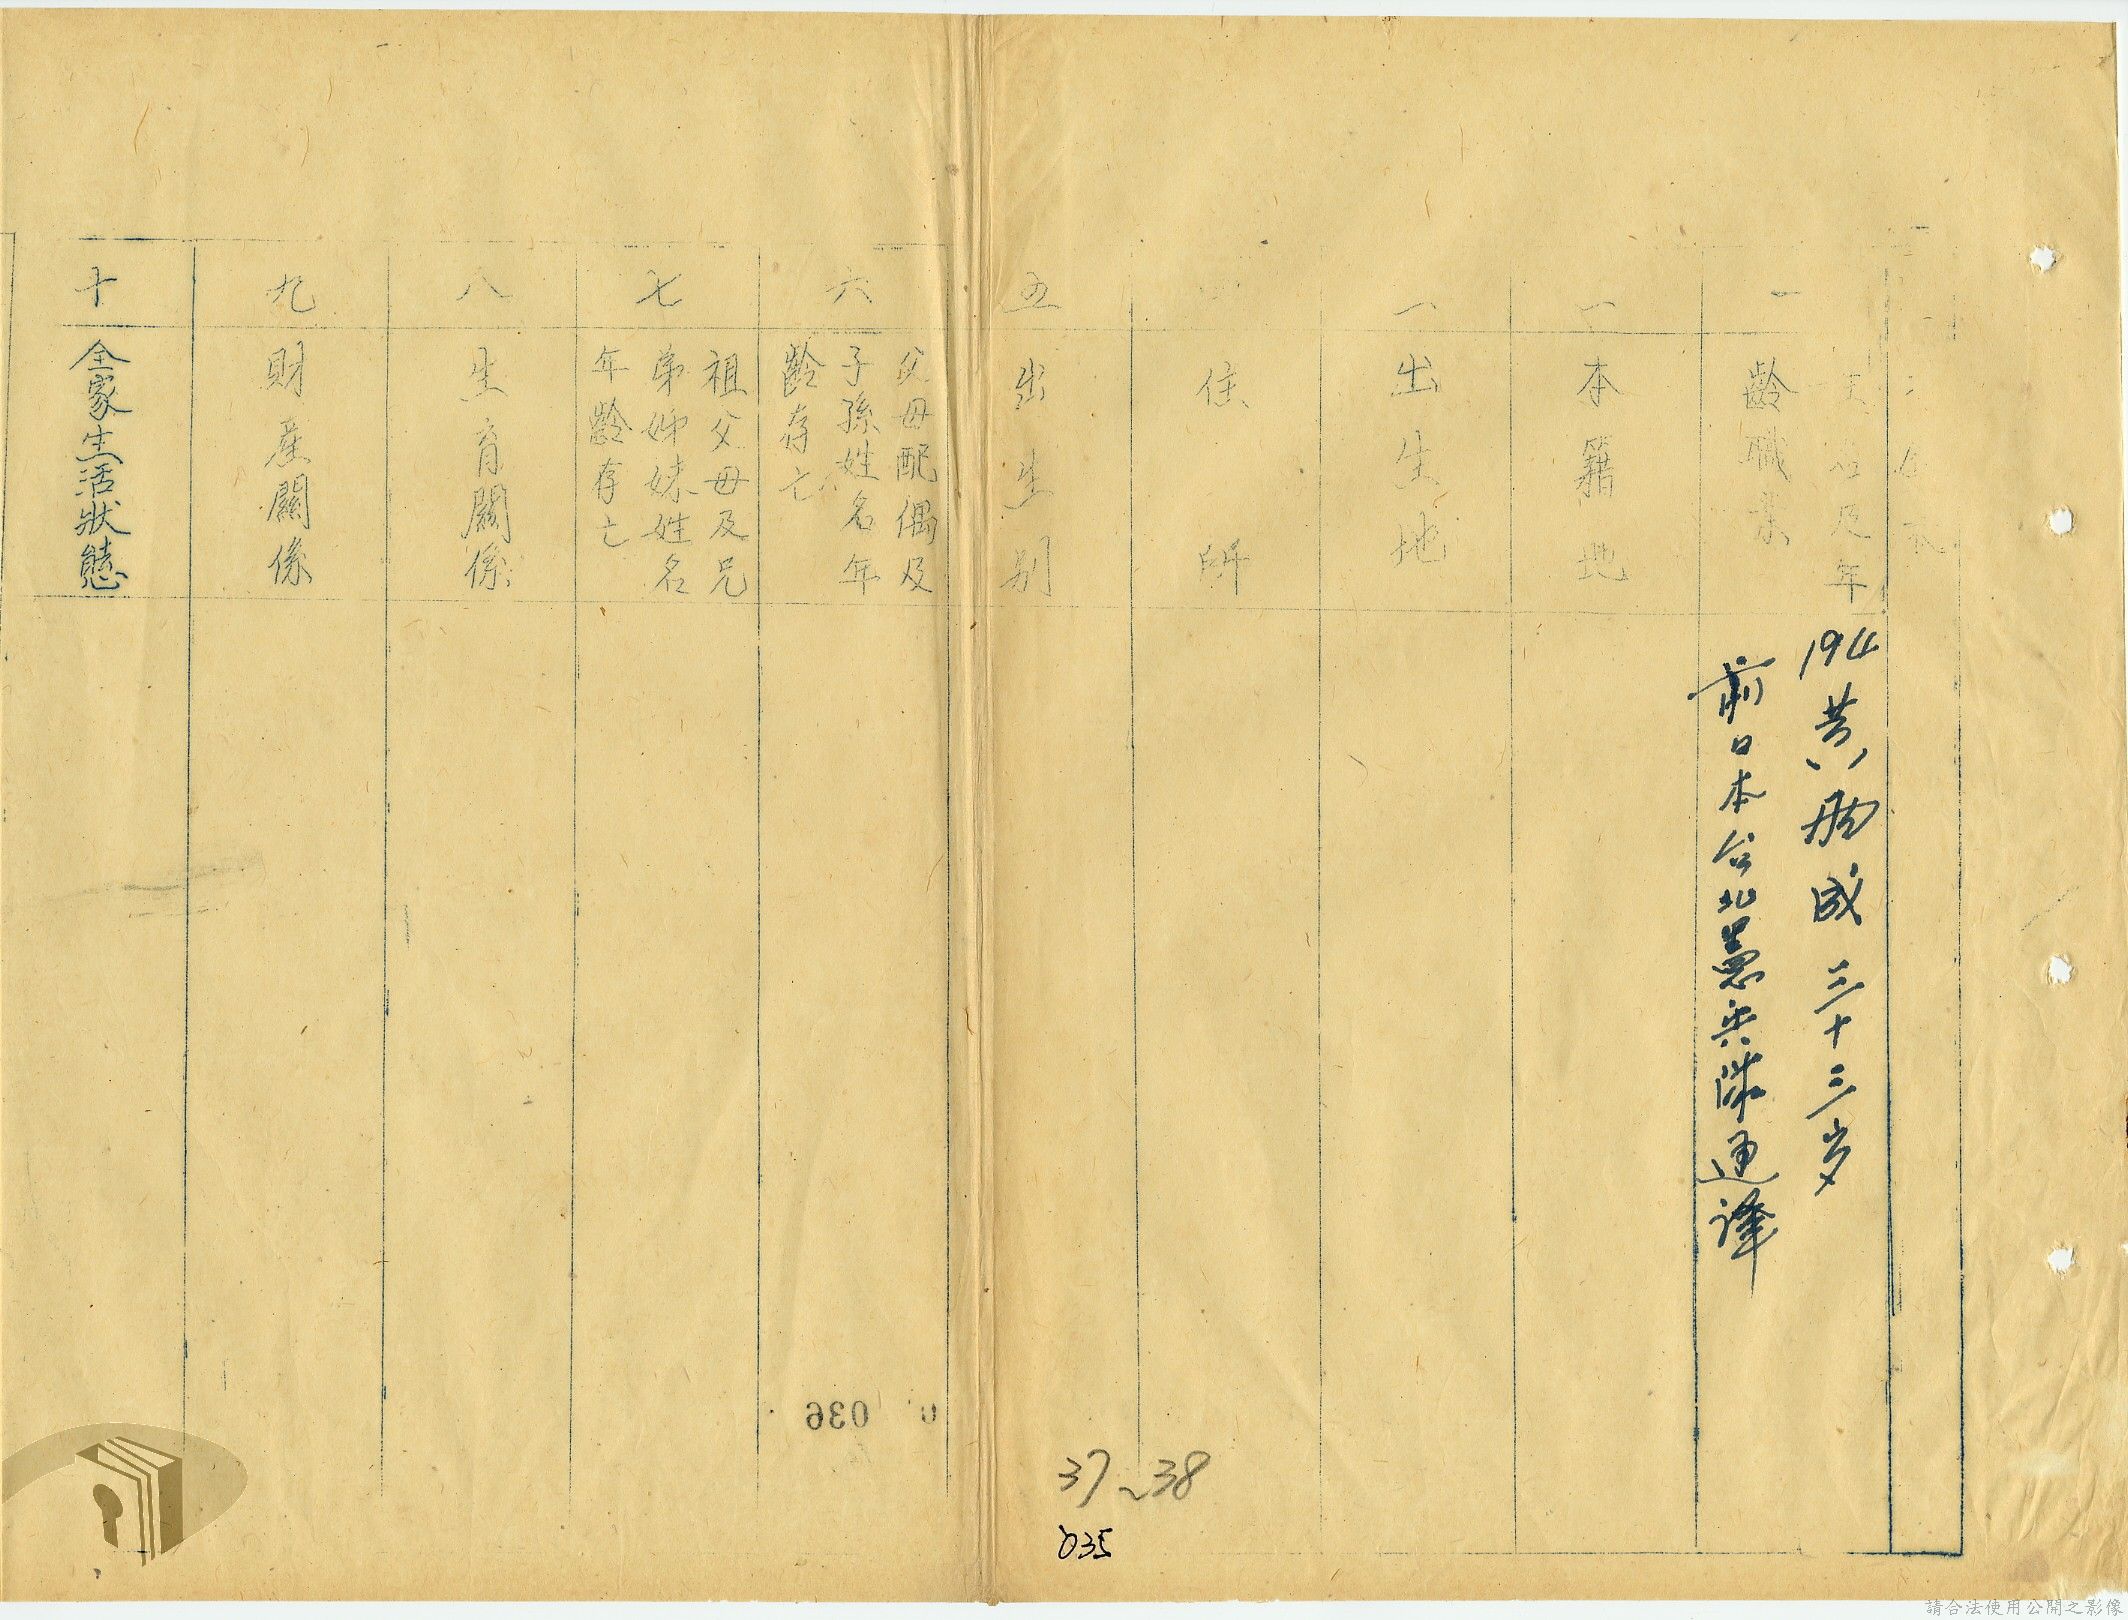 姓名及年
齡職業
194 黄朋成 三十三岁
前日本台北憲兵隊通譯
一
本籍地
一
出生地
四
住所
五
出生別
六
父母配偶及
子孫姓名年
齡存亡
七
祖父母及兄
弟姉妹姓名
年齡存亡
八
生育關係
九
財産關係
十
全家生活狀態
036
37~38
035
請合法使用公開之影像